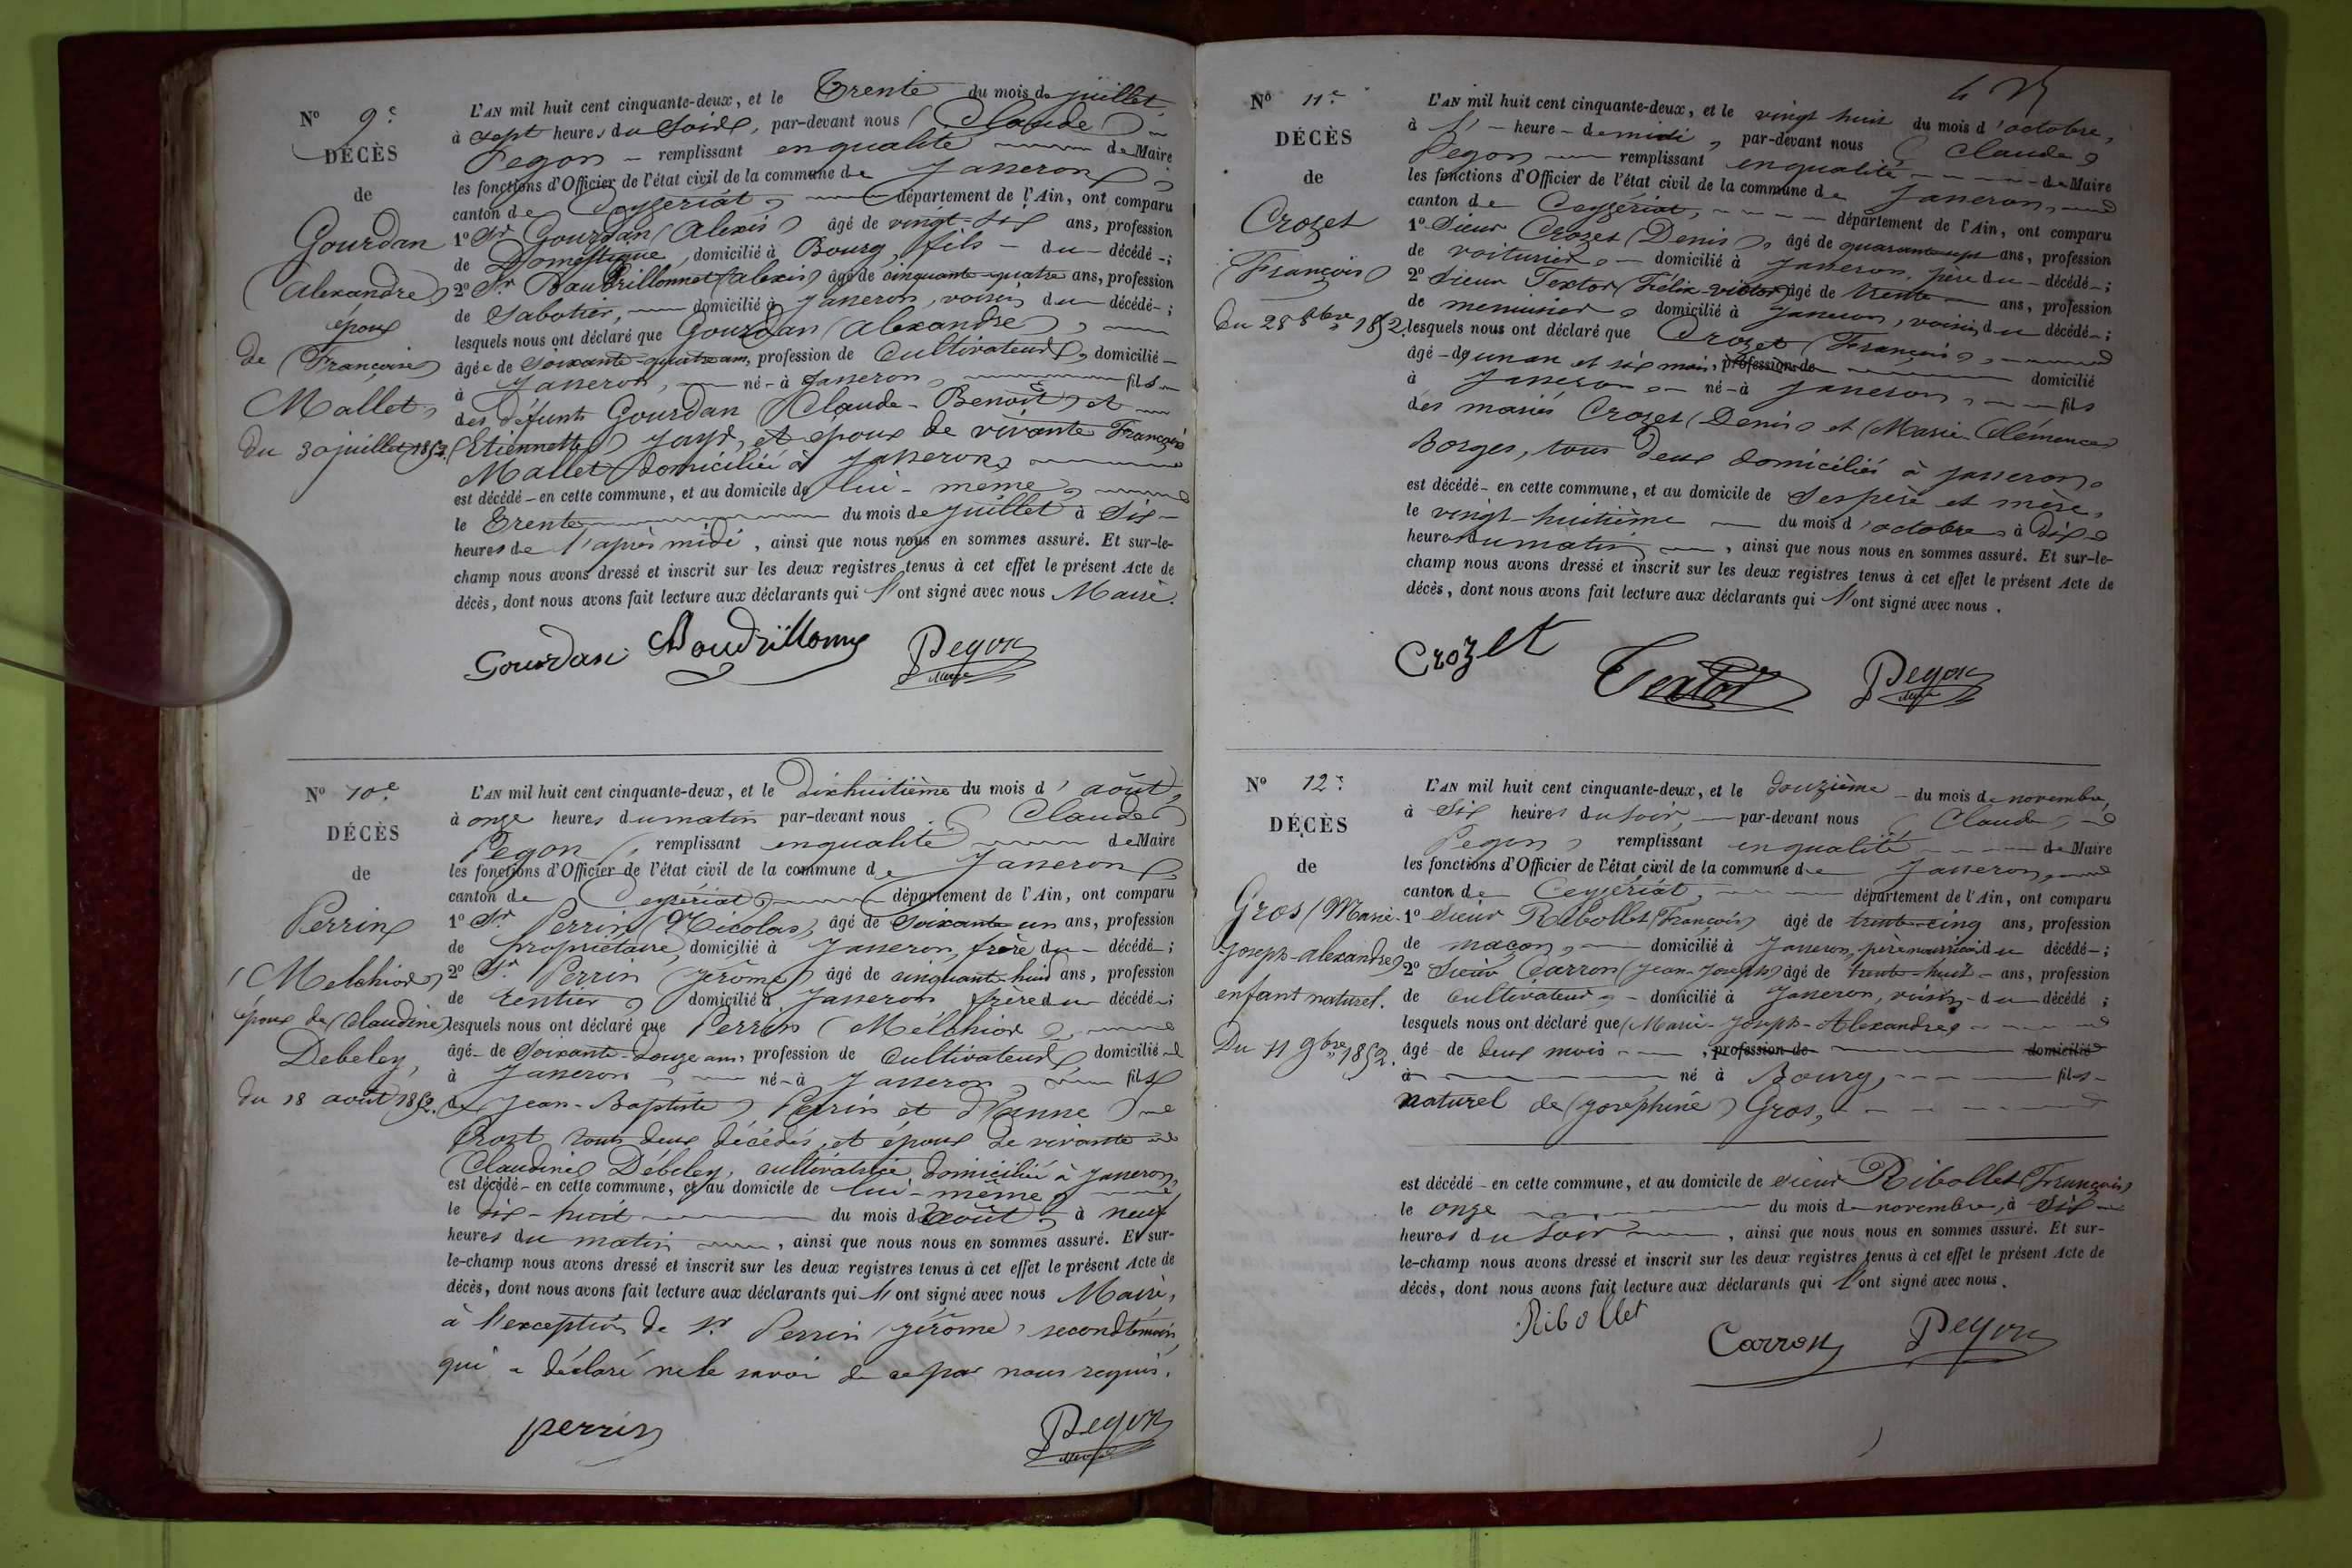 N° 9e
DÉCÈS
de
Gourdan
(Alexandre)
époux
de (Françoise)
Mallet,
du 30 juillet 1852.
L'AN mil huit cent cinquante-deux, et le Trente du mois de juillet,
à sept heures du soir, par-devant nous (Claude)
Pegon remplissant en qualité de Maire
les fonctions d'Officier de l'état civil de la commune de Jasseron,
canton de Ceyzériat, département de l'Ain, ont comparu
1° Sr. Gourdan (Alexis) âgé de vingt-six ans, profession
de Domestique, domicilié à Bourg, fils du décédé;
2° Sr. Baudrillonnet (alexis) âgé de cinquante-quatre ans, profession
de Sabotier, domicilié à Jasseron, voisin du décédé;
lesquels nous ont déclaré que Gourdan (alexandre),
âgé de Soixante-quatre ans, profession de Cultivateur, domicilié
à Jasseron, né à Jasseron, fils
des défunts Gourdan (Claude-Benoit) et
(Etiennette) Jayr, et époux de vivante Françoise
Mallet domiciliée à Jasseron,
est décédé en cette commune, et au domicile de lui-même,
le Trente du mois de juillet à Six
heures de l'après midi, ainsi que nous nous en sommes assuré. Et sur-le-
champ nous avons dressé et inscrit sur les deux registres tenus à cet effet le présent Acte de
décès, dont nous avons fait lecture aux déclarants qui l'ont signé avec nous Maire.
Gourdan Pegon
maire
N° 10e
DÉCÈS
de
Perrin
(Melchior)
époux de (Claudine)
Debeley,
du 18 août 1852.
L'AN mil huit cent cinquante-deux, et le Dixhuitième du mois d'août,
à onze heures du matin par-devant nous (Claude)
Pegon, remplissant en qualité de Maire
les fonctions d'Officier de l'état civil de la commune de Jasseron
canton de Ceyzériat, département de l'Ain, ont comparu
1° Sr. Perrin (Nicolas), âgé de Soixante un ans, profession
de propriétaire, domicilié à Jasseron, frère du décédé;
2° Sr. Perrin (jérôme) âgé de cinquante-huit ans, profession
de rentier, domicilié à Jasseron frère du décédé;
lesquels nous ont déclaré que Perrin (Mélchior),
âgé de Soixante-douze ans, profession de Cultivateur, domicilié
à Jasseron, né à Jasseron, fils
de Jean-Baptiste) Perrin et d'(anne)
Prost tous deux décédés, et époux de vivante
(Claudine) Débeley, cultivatrice domiciliée à Jasseron,
est décédé en cette commune, et au domicile de lui-même,
le dix-huit du mois d'août, à neuf
heures du matin, ainsi que nous nous en sommes assuré. Et sur-
le-champ nous avons dressé et inscrit sur les deux registres tenus à cet effet le présent Acte de
décès, dont nous avons fait lecture aux déclarants qui l'ont signé avec nous Maire,
à l'exception de Sr. Perrin (jérôme), second témoin,
qui a déclaré ne le savoir de ce par nous requis.
perrin Pegon
maire
N° 11e
DÉCÈS
de
Crozet
(François)
du 28 8bre 1852.
L'AN mil huit cent cinquante-deux, et le vingt huit du mois d'octobre,
à heure de midi, par-devant nous (Claude)
Pegon remplissant en qualité de Maire
les fonctions d'Officier de l'état civil de la commune de Jasseron,
canton de Ceyzériat, département de l'Ain, ont comparu
1° Sieur Crozet (Denis), âgé de quarante sept ans, profession
de voiturier, domicilié à Jasseron, père du décédé;
2° Sieur Textor (Félix-victor) âgé de trente ans, profession
de menuisier, domicilié à Jasseron, voisin du décédé;
lesquels nous ont déclaré que Crozet (François),
âgé de un an et six mois, profession de domicilié
à Jasseron, né à Jasseron, fils
des mariés Crozet (Denis) et (Marie Clémence)
Borges, tous deux domiciliés à Jasseron,
est décédé en cette commune, et au domicile de Ses père et mère,
le vingt-huitième du mois d'octobre, à Dix
heures du matin, ainsi que nous nous en sommes assuré. Et sur-le-
champ nous avons dressé et inscrit sur les deux registres tenus à cet effet le présent Acte de
décès, dont nous avons fait lecture aux déclarants qui l'ont signé avec nous.
Crozet Textor Pegon
N° 12e
DÉCÈS
de
Gros (Marie-
Joseph-alexandre)
enfant naturel.
Du 11 9bre 1852.
L'AN mil huit cent cinquante-deux, et le douzième du mois de novembre,
à Six heures du soir, par-devant nous (Claude)
Pegon, remplissant en qualité de Maire
les fonctions d'Officier de l'état civil de la commune de Jasseron,
canton de Ceyzériat, département de l'Ain, ont comparu
1° Sieur Ribollet (François) âgé de trente-cinq ans, profession
de maçon, domicilié à Jasseron, père nourricier du décédé;
2° Sieur Carron (Jean-Joseph) âgé de trente-huit ans, profession
de Cultivateur, domicilié à Jasseron, voisin du décédé;
lesquels nous ont déclaré que (Marie-Joseph-Alexandre)
âgé de deux mois, profession de domicilié
à né à Bourg, fils
naturel de (joséphine) Gros,
est décédé en cette commune, et au domicile de sieur Ribollet (François)
le onze du mois de novembre, à Six
heures du soir, ainsi que nous nous en sommes assuré. Et sur-
le-champ nous avons dressé et inscrit sur les deux registres tenus à cet effet le présent Acte de
décès, dont nous avons fait lecture aux déclarants qui l'ont signé avec nous.
Ribollet Carron Pegon